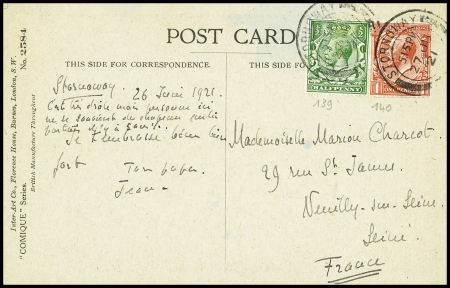 POST CARD
THIS SIDE FOR CORRESPONDENCE.
THIS SIDE FOR
Stornoway. 26 Juin 1921.
C'est très drôle mais personne ici
ne se souvient du chapeau
Je t'embrasse bien
fort Ton papa
Jean
Mademoiselle Marion Charcot.
29 rue St James.
Neuilly-sur-Seine.
Seine
France
HALFPENNY
STORNOWAY
21
139
140
Inter-Art Co., Florence House, Barnes, London, S.W.
"COMIQUE" Series.
British Manufacture Throughout
No. 2584